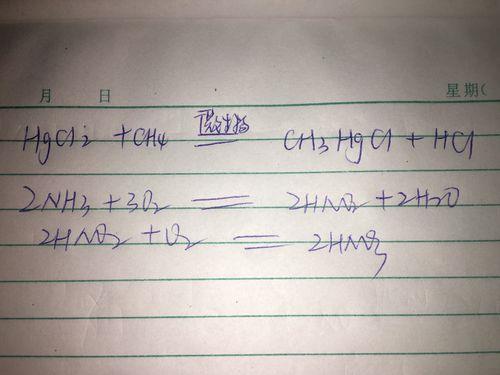 月 日 星期(
HgCl2 + CH4 微生物 ══ CH3HgCl + HCl
2NH3 + 3O2 ══ 2HNO2 + 2H2O
2HNO2 + O2 ══ 2HNO3